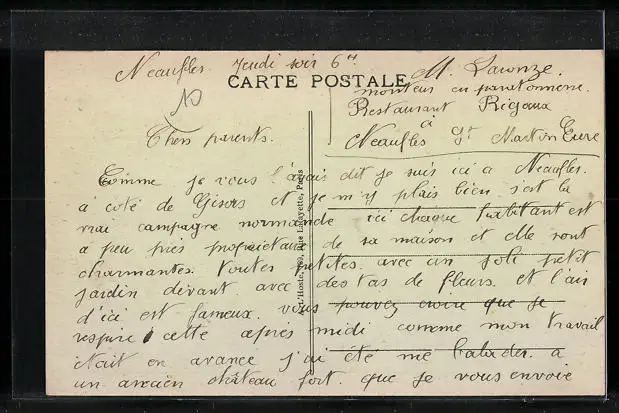 Neaufles Jeudi soir 6h
CARTE POSTALE
M. Laronze.
monteur en paratonnerre.
Restaurant Rigaux
à
Neaufles St Martin Eure
Chers parents.
Comme je vous l'avais dit je suis ici a Neaufles.
à coté de Gisors et je m'y plais bien. s'est la
vrai campagne normande ici chaque habitant est
a peu près propriétaire de sa maison et elle sont
charmantes. toutes petites. avec un joli petit
jardin devant. avec des tas de fleurs. et l'air
d'ici est fameux. vous pouvez croire que je
respire cette après midi comme mon travail
était en avance j'ai été me balader. a
un ancien château fort. que je vous envoie
L'Hoste, Rue Lafayette, Paris